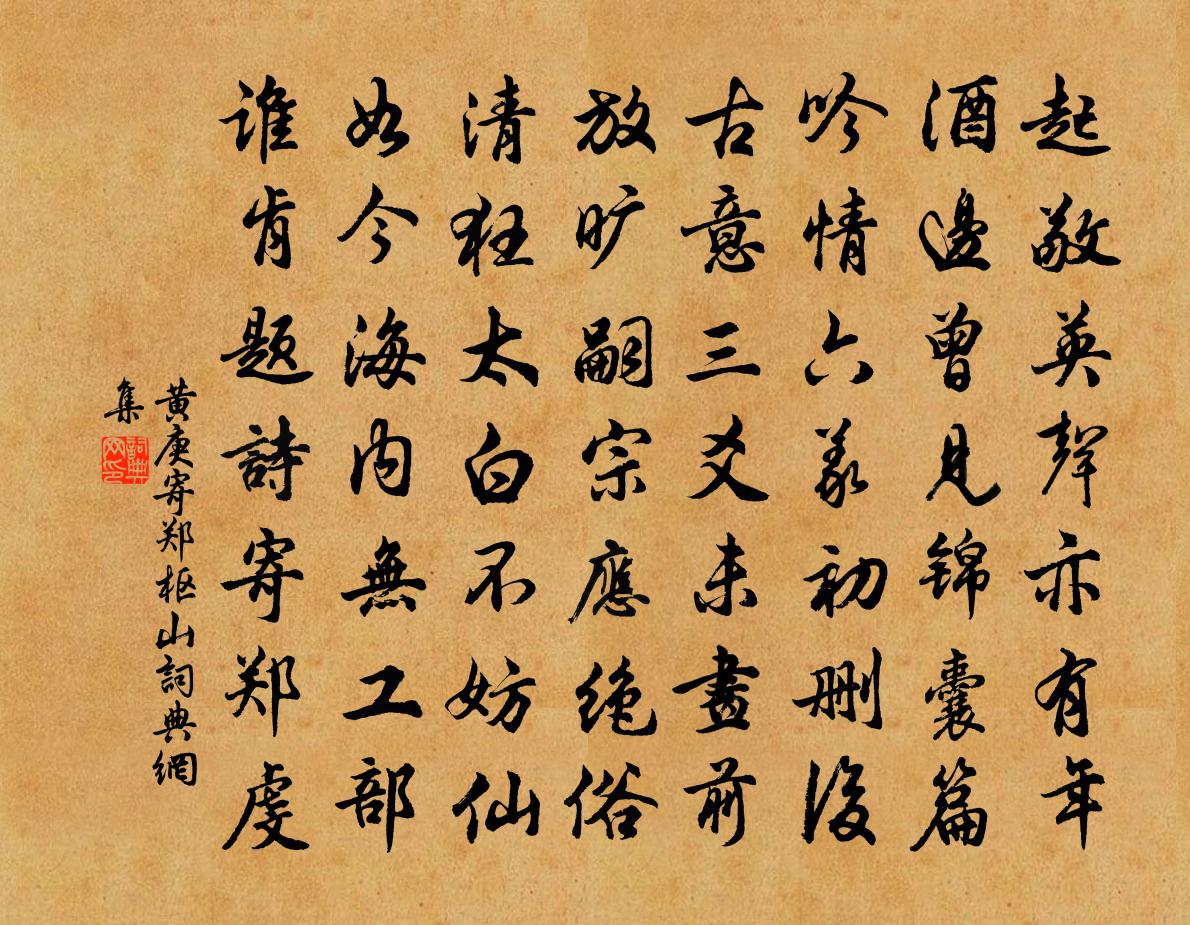 起敬英聲亦有年
酒邊曾見錦囊篇
吟情六義初删後
古意三爻未畫前
放旷嗣宗應絶俗
清狂太白不妨仙
如今海内無工部
谁肯题詩寄郑虔
黄庚寄郑枢山詞典網
集
詞典網印